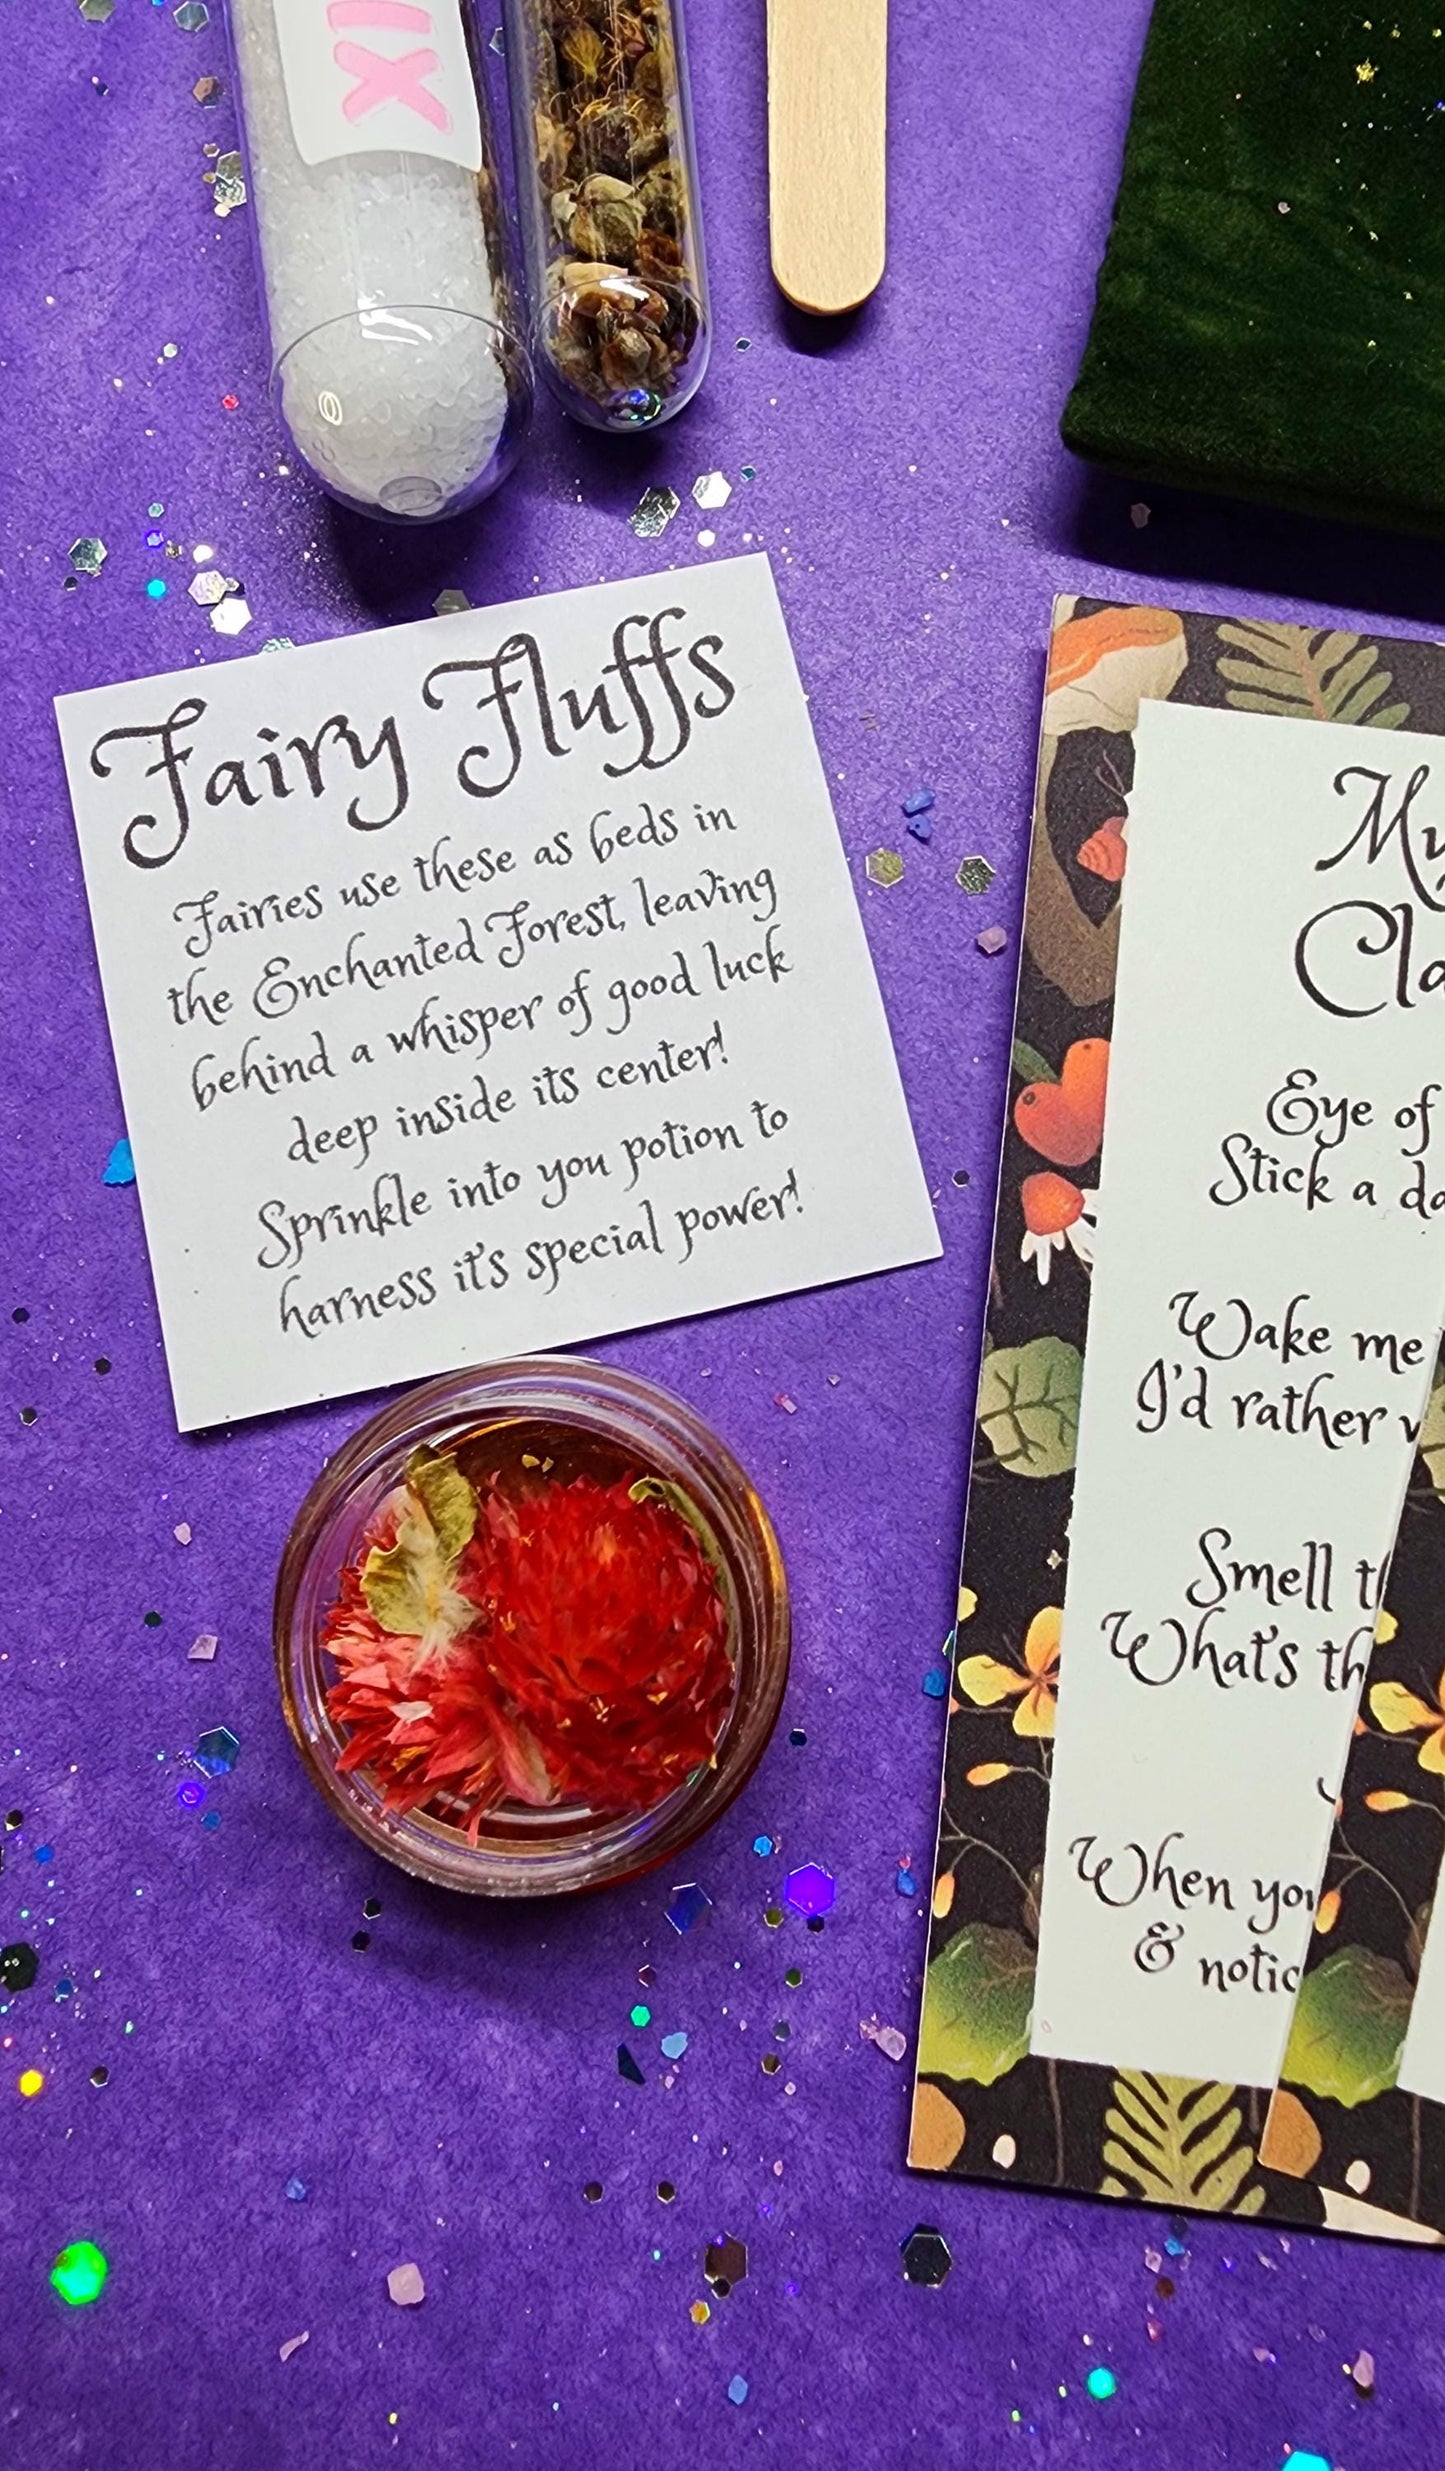 IX
Fairy Fluffs
Fairies use these as beds in
the Enchanted Forest, leaving
behind a whisper of good luck
deep inside its center!
Sprinkle into you potion to
harness it's special power!
Eye of
Stick a
Wake me
I'd rather
Smell
What's
When
&